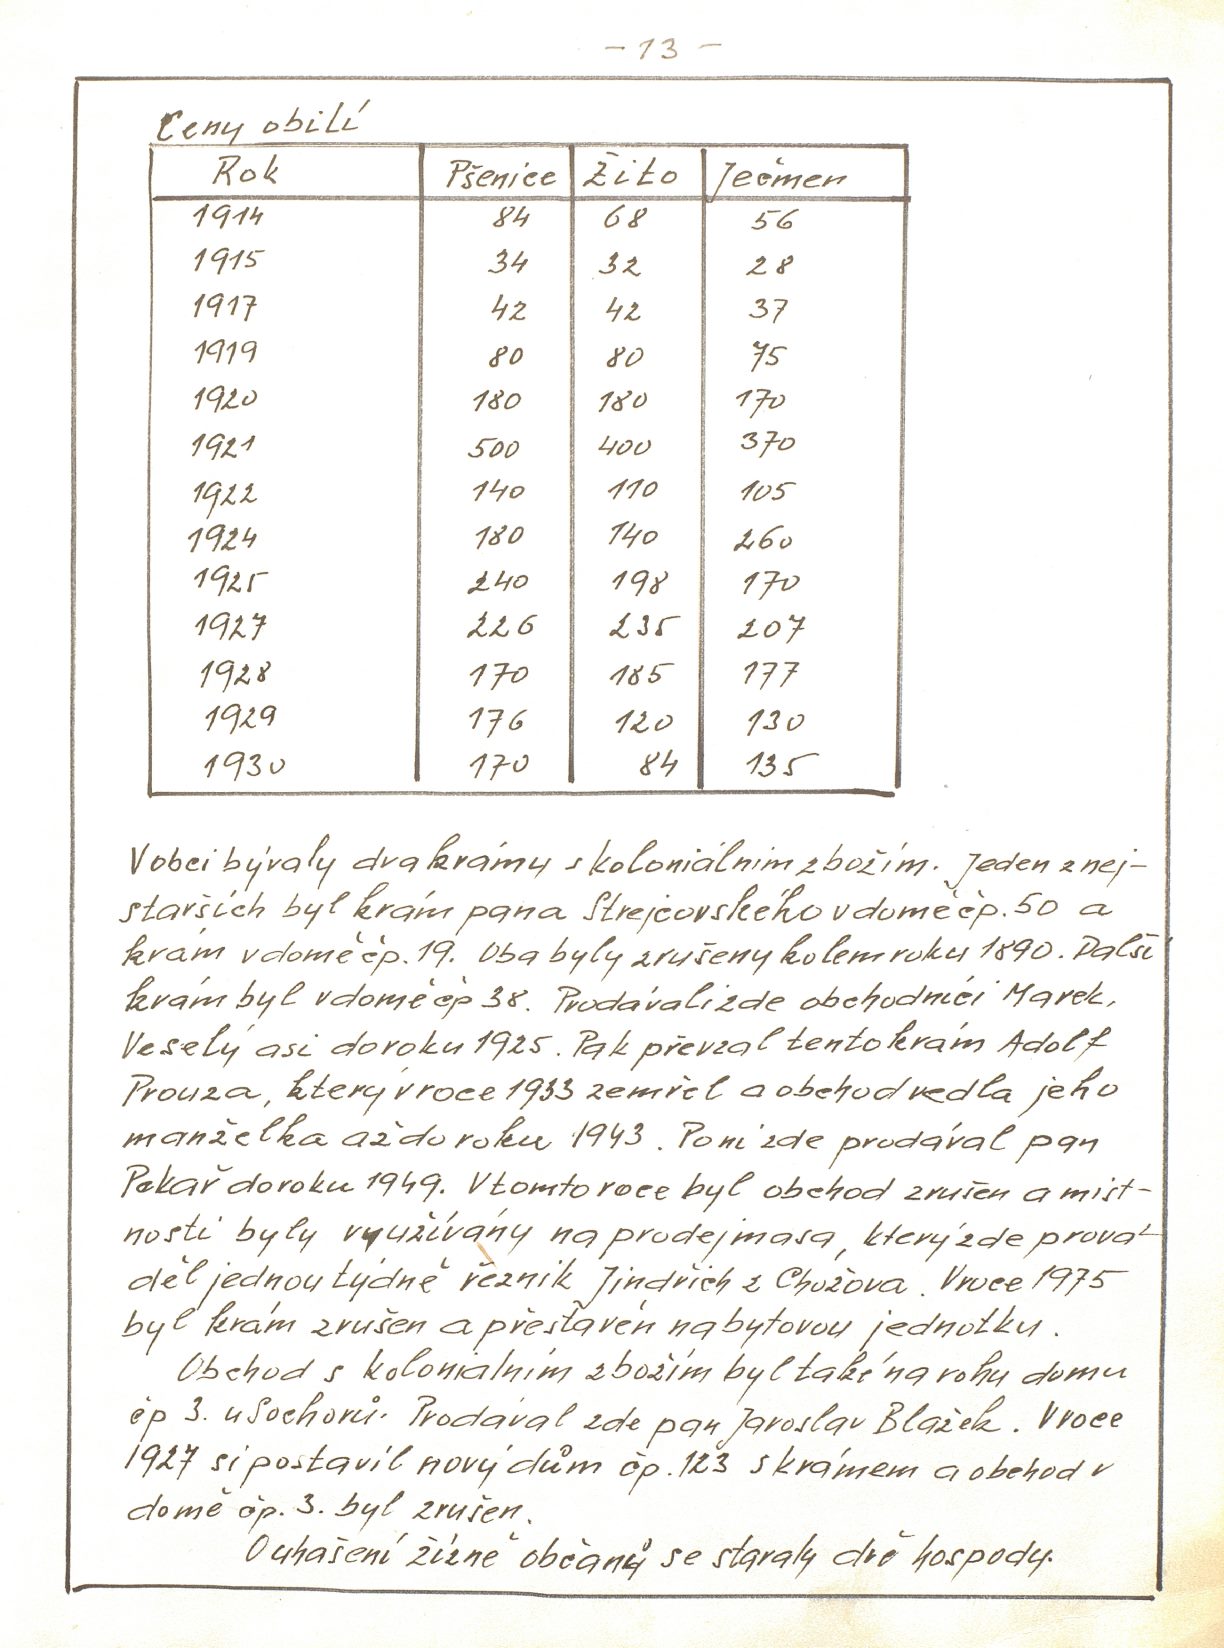 - 13 -
Ceny obilí
Rok Pšenice Žito Ječmen
1914 84 68 56
1915 34 32 28
1917 42 42 37
1919 80 80 75
1920 180 180 170
1921 500 400 370
1922 140 110 105
1924 180 140 260
1925 240 198 170
1927 226 235 207
1928 170 185 177
1929 176 120 130
1930 170 84 135
V obci bývaly dva krámy s koloniálním zbožím. Jeden z nej-
starších byl krám pana Strejcovského v domě čp. 50 a
krám v domě čp. 19. Oba byly zrušeny kolem roku 1890. Další
krám byl v domě čp 38. Prodávali zde obchodníci Marek,
Veselý asi do roku 1925. Pak převzal tento krám Adolf
Prouza, který v roce 1933 zemřel a obchod vedla jeho
manželka až do roku 1943. Po ní zde prodával pan
Pekař do roku 1949. V tomto roce byl obchod zrušen a míst-
nosti byly využívány na prodej masa, který zde prová-
děl jednou týdně řezník Jindřich z Chožova. V roce 1975
byl krám zrušen a přestavěn na bytovou jednotku.
Obchod s koloniálním zbožím byl také na rohu domu
čp 3. u Sochorů. Prodával zde pan Jaroslav Blažek. V roce
1927 si postavil nový dům čp. 123 s krámem a obchod v
domě čp. 3. byl zrušen.
O uhašení žízně občanů se staraly dvě hospody.